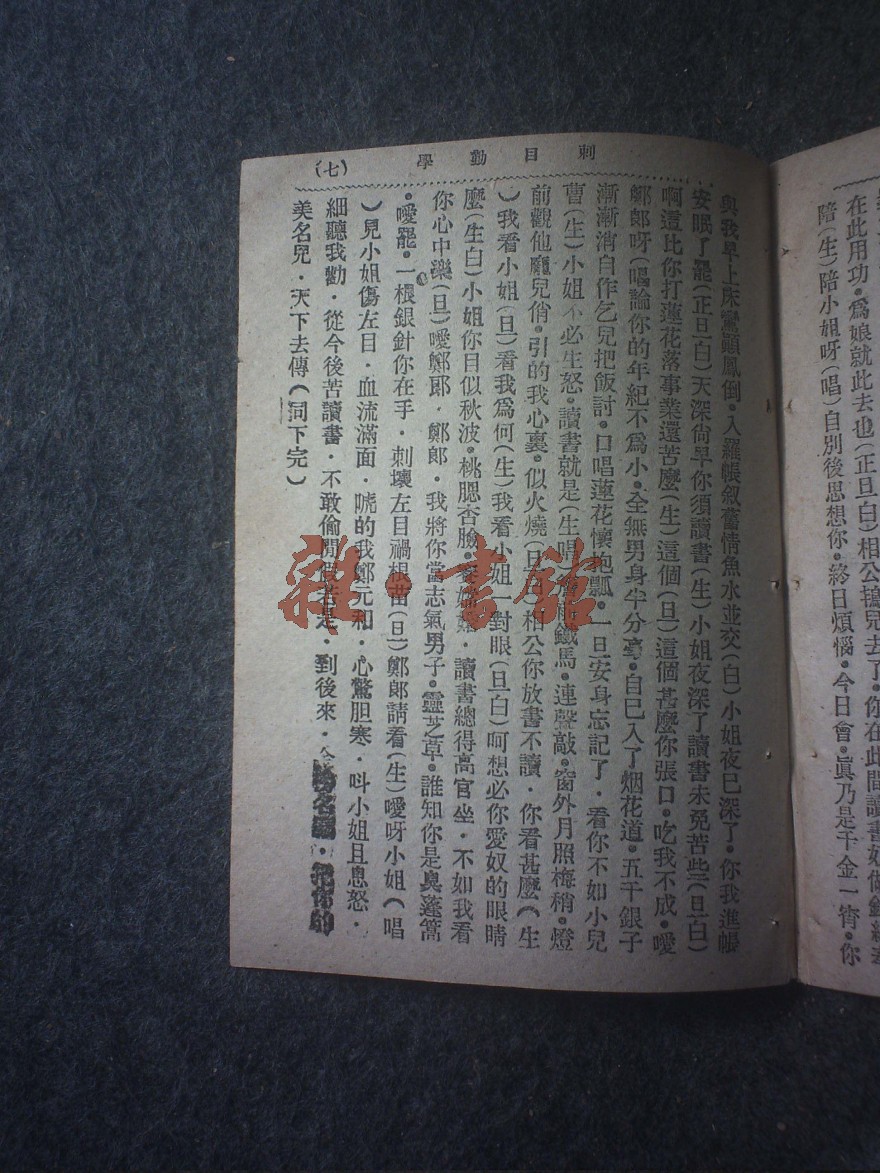 在此用功·爲娘就此去也(正旦白)相公搗兒去了·你在此間讀書奴做
陪(生)陪小姐呀(唱)自別後思想你·終日煩惱·今日會·眞乃是千金一宵·你
刺目勤學
(七)
與我早上床鸞顚鳳倒·入羅帳敘舊情魚水並交(白)小姐夜已深了·你我進帳
安眠了罷(正旦白)天深尙早你須讀書(生)小姐夜深了讀書未免苦些(旦白)
啊這比你打蓮花落事業還苦麼(生)這個(旦)這個甚麼你張口·吃我不成·噯
鄭郞呀(唱論你的年紀不爲小·全無男身半分毫·自已入了烟花道·五千銀子
漸漸消自作乞兒把飯討·口唱蓮花懷抱瓢·一旦安身忘記了·看你不如小兒
曹(生)小姐不必生怒·讀書就是(生唱)鐵馬·連聲敲·窗外月照梅稍·燈
前觀他龐兒俏·引的我心裏·似火燒(旦白)相公你放書不讀·你看甚麼(生
)我看小姐(旦)看我爲何(生)我看小姐一對眼(旦白)呵想必你愛奴的眼睛
麼(生白)小姐你目似秋波·桃腮杏臉·讀書總得高官坐·不如我看
你心中樂(旦)噯鄭郞·鄭郞·我將你當志氣男子·靈芝草·誰知你是臭蓬蒿
·噯罷·一根銀針你在手·刺壞左目禍根苗(旦)鄭郞請看(生)噯呀小姐(唱
)見小姐傷左目·血流滿面·唬的我鄭元和·心驚胆寒·呌小姐且息怒·
細聽我勸·從今後苦讀書·不敢偷閒假若是·到後來·名·把你的
美名兒·天下去傳(同下完)
雜·書館